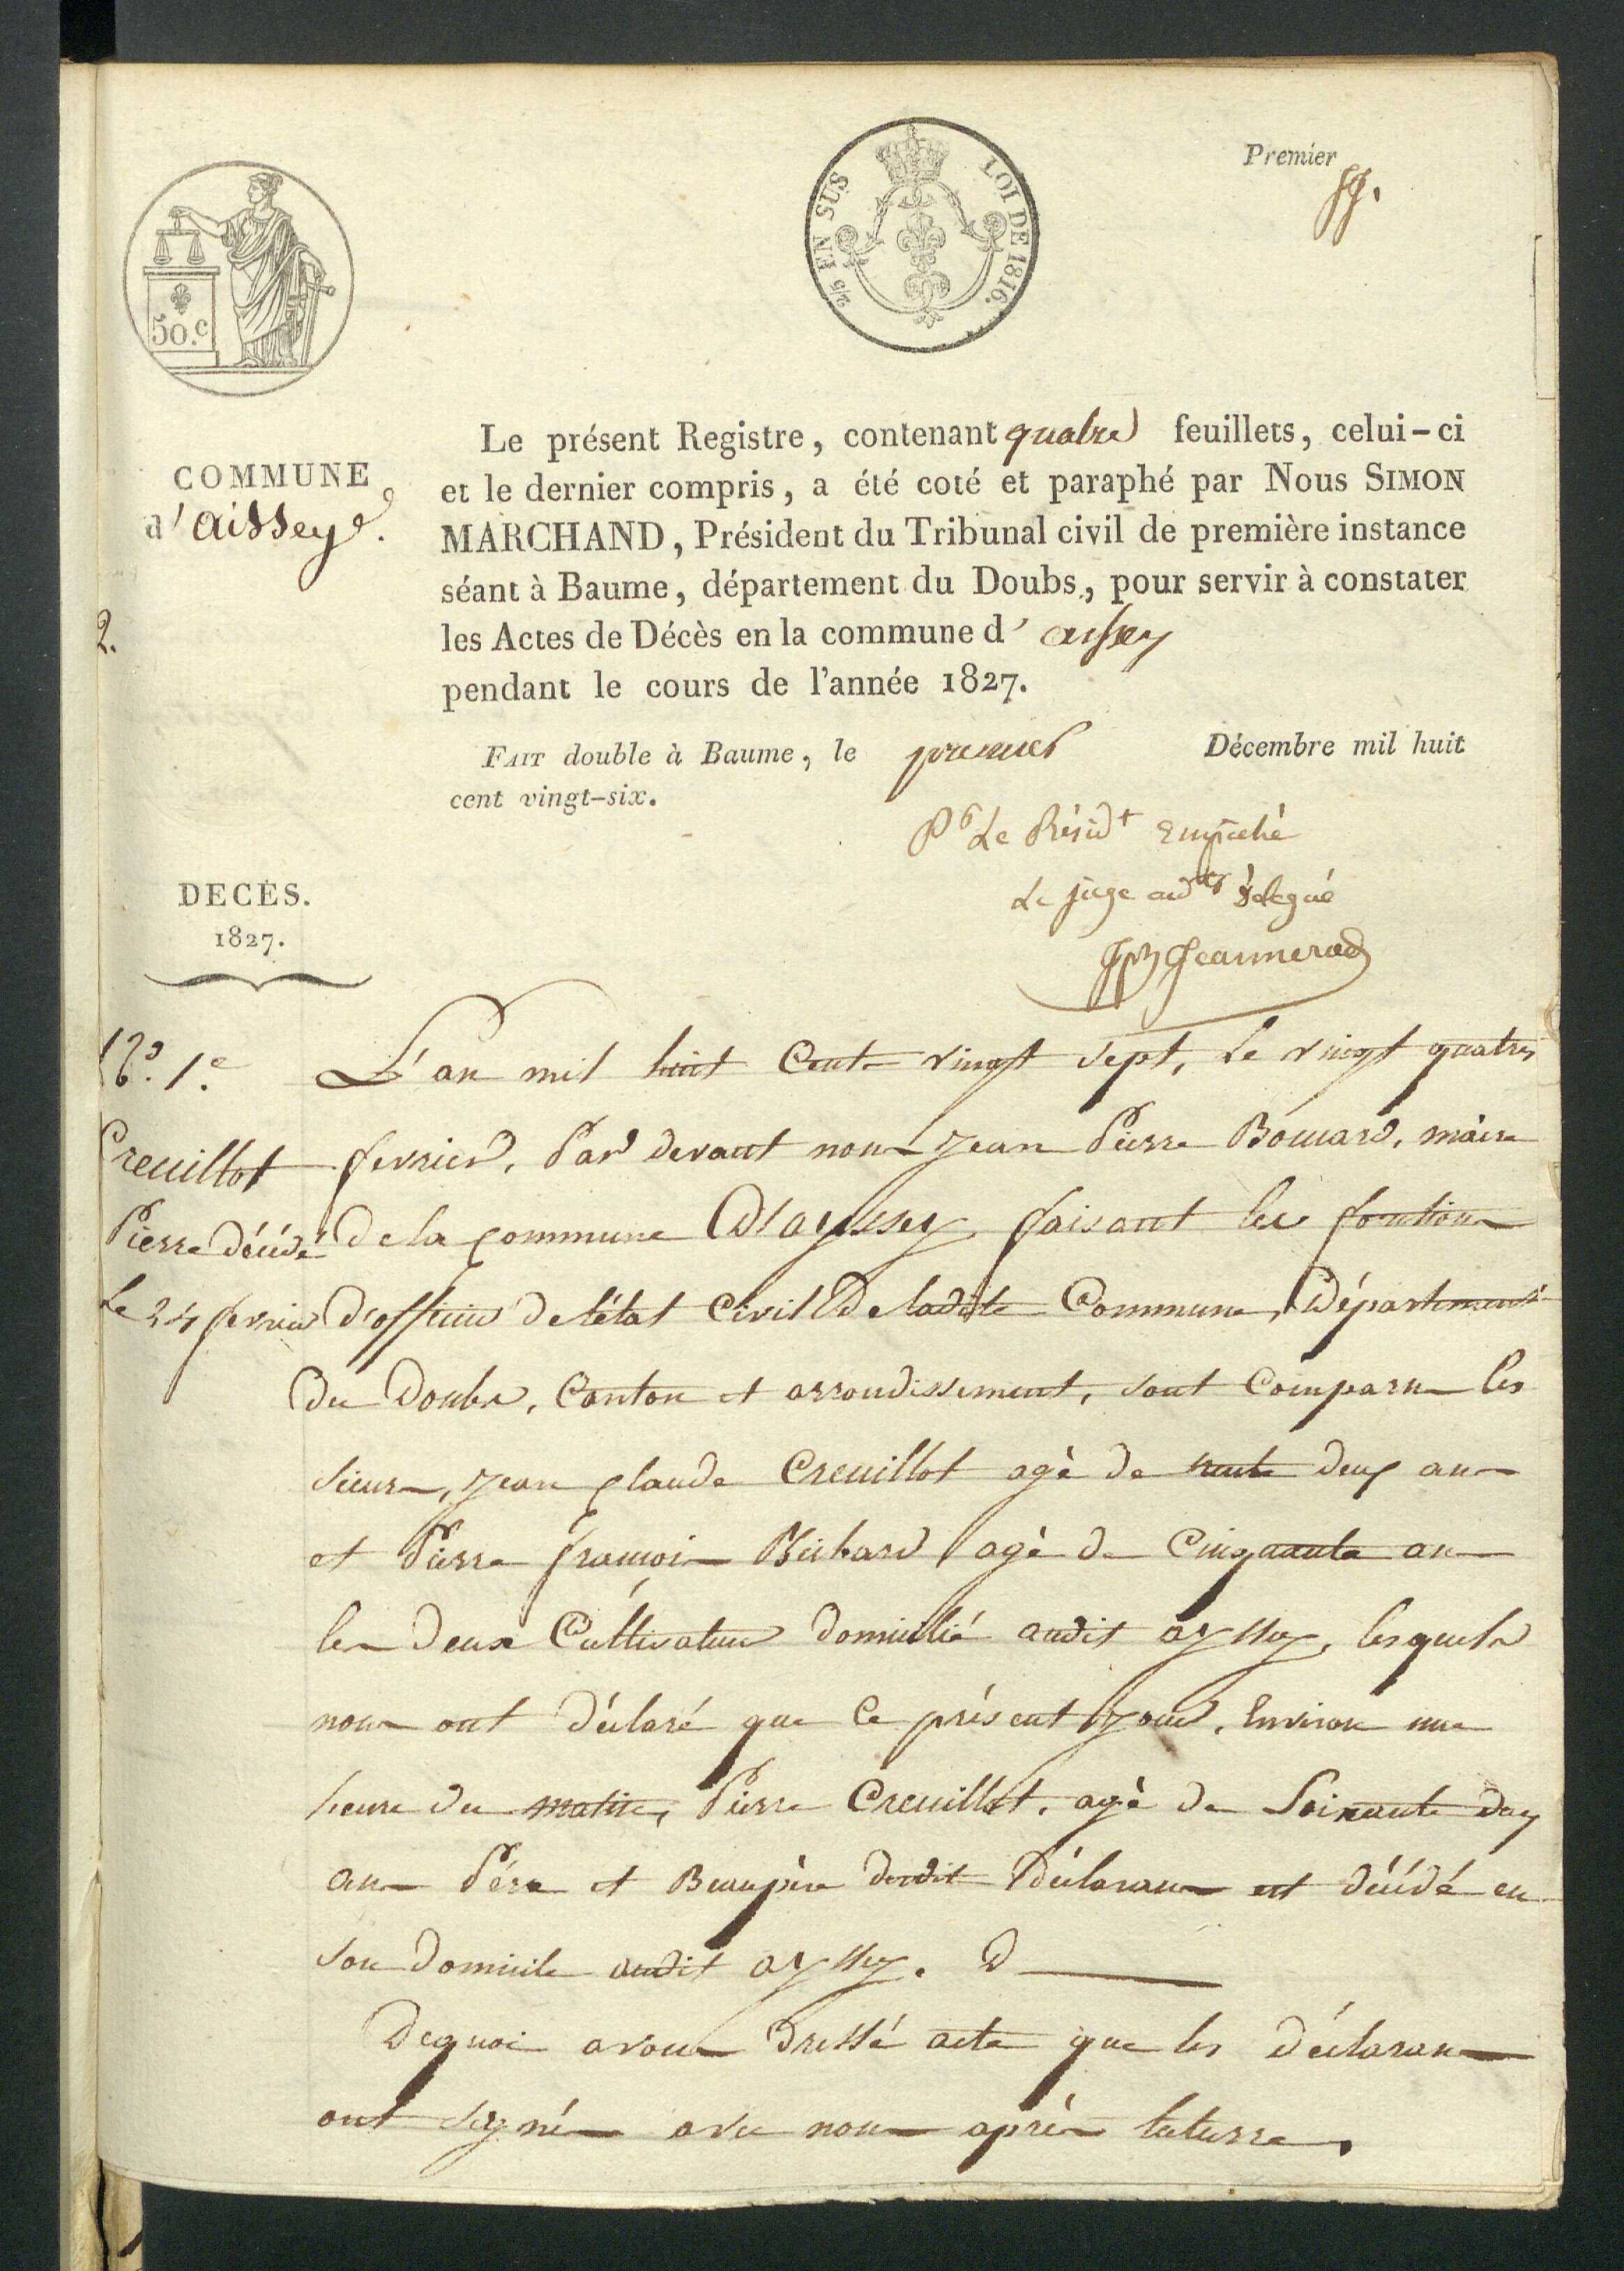 Premier
2/5 EN SUS
LOI DE 1816.
50.c
COMMUNE
d'aissey.
2.
Le présent Registre, contenant quatre feuillets, celui-ci
et le dernier compris, a été coté et paraphé par Nous SIMON
MARCHAND, Président du Tribunal civil de première instance
séant à Baume, département du Doubs, pour servir à constater
les Actes de Décès en la commune d' aissey
pendant le cours de l'année 1827.
FAIT double à Baume, le premier Décembre mil huit
cent vingt-six.
Pr Le Présidt Empêché
Le juge audr délégué
Jeannerod
DECÈS.
1827.
No. 1.e
Creuillot
Pierre décédé
Le 24 fevrier
L'an mil huit Cent vingt sept, Le vingt quatre
fevrier, Par devant nous Jean Pierre Bouard, maire
de la Commune D'ayssey faisant les fonction
d'officier de létat Civil De ladite Commune, Département
du Doubs, Canton et arrondissement, sont Comparu les
sieurs, Jean Claude Creuillot agé de trente deux ans
et Pierre françois agé de Cinquante ans
les deux Cultivateur domicilié audit ayssey, lesquels
nous ont déclaré que Ce présent jour, Environ une
heure du matin, Pierre Creuillot, agé de Soixante dix
ans Pére et Beaupère dudit Déclarans est décédé en
son domicile audit ayssey. D
Dequoi avons Dressé acte que les déclarans
ont signé avec nous après lecture.